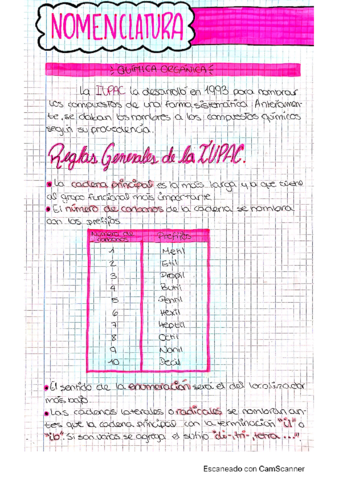 NOMENCLATURA
QUÍMICA ORGÁNICA
La IUPAC la desarrolló en 1993 para nombrar
los compuestos de una forma sistemática. Anteriormen-
te, se daban los nombres a los compuestos químicos
según su procedencia.
Reglas Generales de la IUPAC.
La cadena principal es la más larga y la que tiene
al grupo funcional más importante.
El número de carbonos de la cadena se nombra
con los prefijos
Número de carbonos Prefijos
1 Metil
2 Etil
3 Propil
4 Butil
5 Pentil
6 Hexil
7 Heptil
8 Octil
9 Nonil
10 Decil
El sentido de la enumeración será el del localizador
más bajo.
Las cadenas laterales o radicales se nombran an-
tes que la cadena principal con la terminación "il" o
"ilo". Si son varios se agrega el sufijo "di-, tri-, tetra ..."
Escaneado con CamScanner